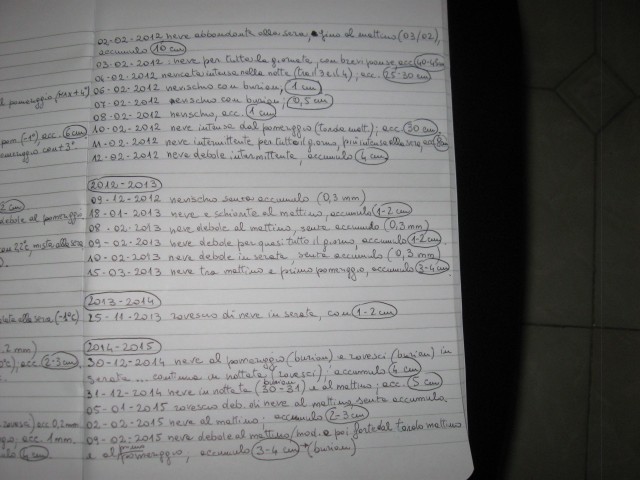 02-02-2012 neve abbondante alla sera, fino al mattino (03/02),
accumulo 10 cm
03-02-2012 neve per tutta la giornata, con brevi pause, acc. 40-45 cm
04-02-2012 nevicata intensa nella notte (tra il 3 e il 4); acc. 25-30 cm
al pomeriggio, max +4°)
06-02-2012 nevischio con burian, 1 cm
07-02-2012 nevischio con burian; 0,5 cm
08-02-2012 nevischio, acc. 1 cm
(-1°), acc. 6 cm
10-02-2012 neve intensa dal pomeriggio (tardo matt.); acc. 30 cm
pomeriggio con +3°
11-02-2012 neve intermittente per tutto il giorno, più intensa alla sera, acc.
12-02-2012 neve debole intermittente, accumulo 4 cm
2012-2013
09-12-2012 nevischio senza accumulo (0,3 mm)
cm
18-01-2013 neve e schiarite al mattino, accumulo 1-2 cm
debole al pomeriggio
08-02-2013 neve debole al mattino, senza accumulo (0,3 mm)
con 2,2°, mista alla sera
09-02-2013 neve debole per quasi tutto il giorno, accumulo 1-2 cm
10-02-2013 neve debole in serata, senza accumulo (0,3 mm)
15-03-2013 neve tra mattino e primo pomeriggio, accumulo 3-4 cm
2013-2014
alla sera (-1°C)
25-11-2013 rovescio di neve in serata, con 1-2 cm
2014-2015
2 mm)
30-12-2014 neve al pomeriggio (burian) e rovesci (burian) in
acc. 2-3 cm
serata... continua in nottata (rovesci): accumulo 4 cm
31-12-2014 neve in nottata (burian) (30-31) e al mattino; acc. 5 cm
05-01-2015 rovescio deb. di neve al mattino senza accumulo.
acc 0,2 mm
02-02-2015 neve al mattino; accumulo 2-3 cm
acc. 1 mm.
09-02-2015 neve debole al mattino/mod. e poi forte dal tardo mattino
cm
e al primo pomeriggio, accumulo 3-4 cm → (burian)